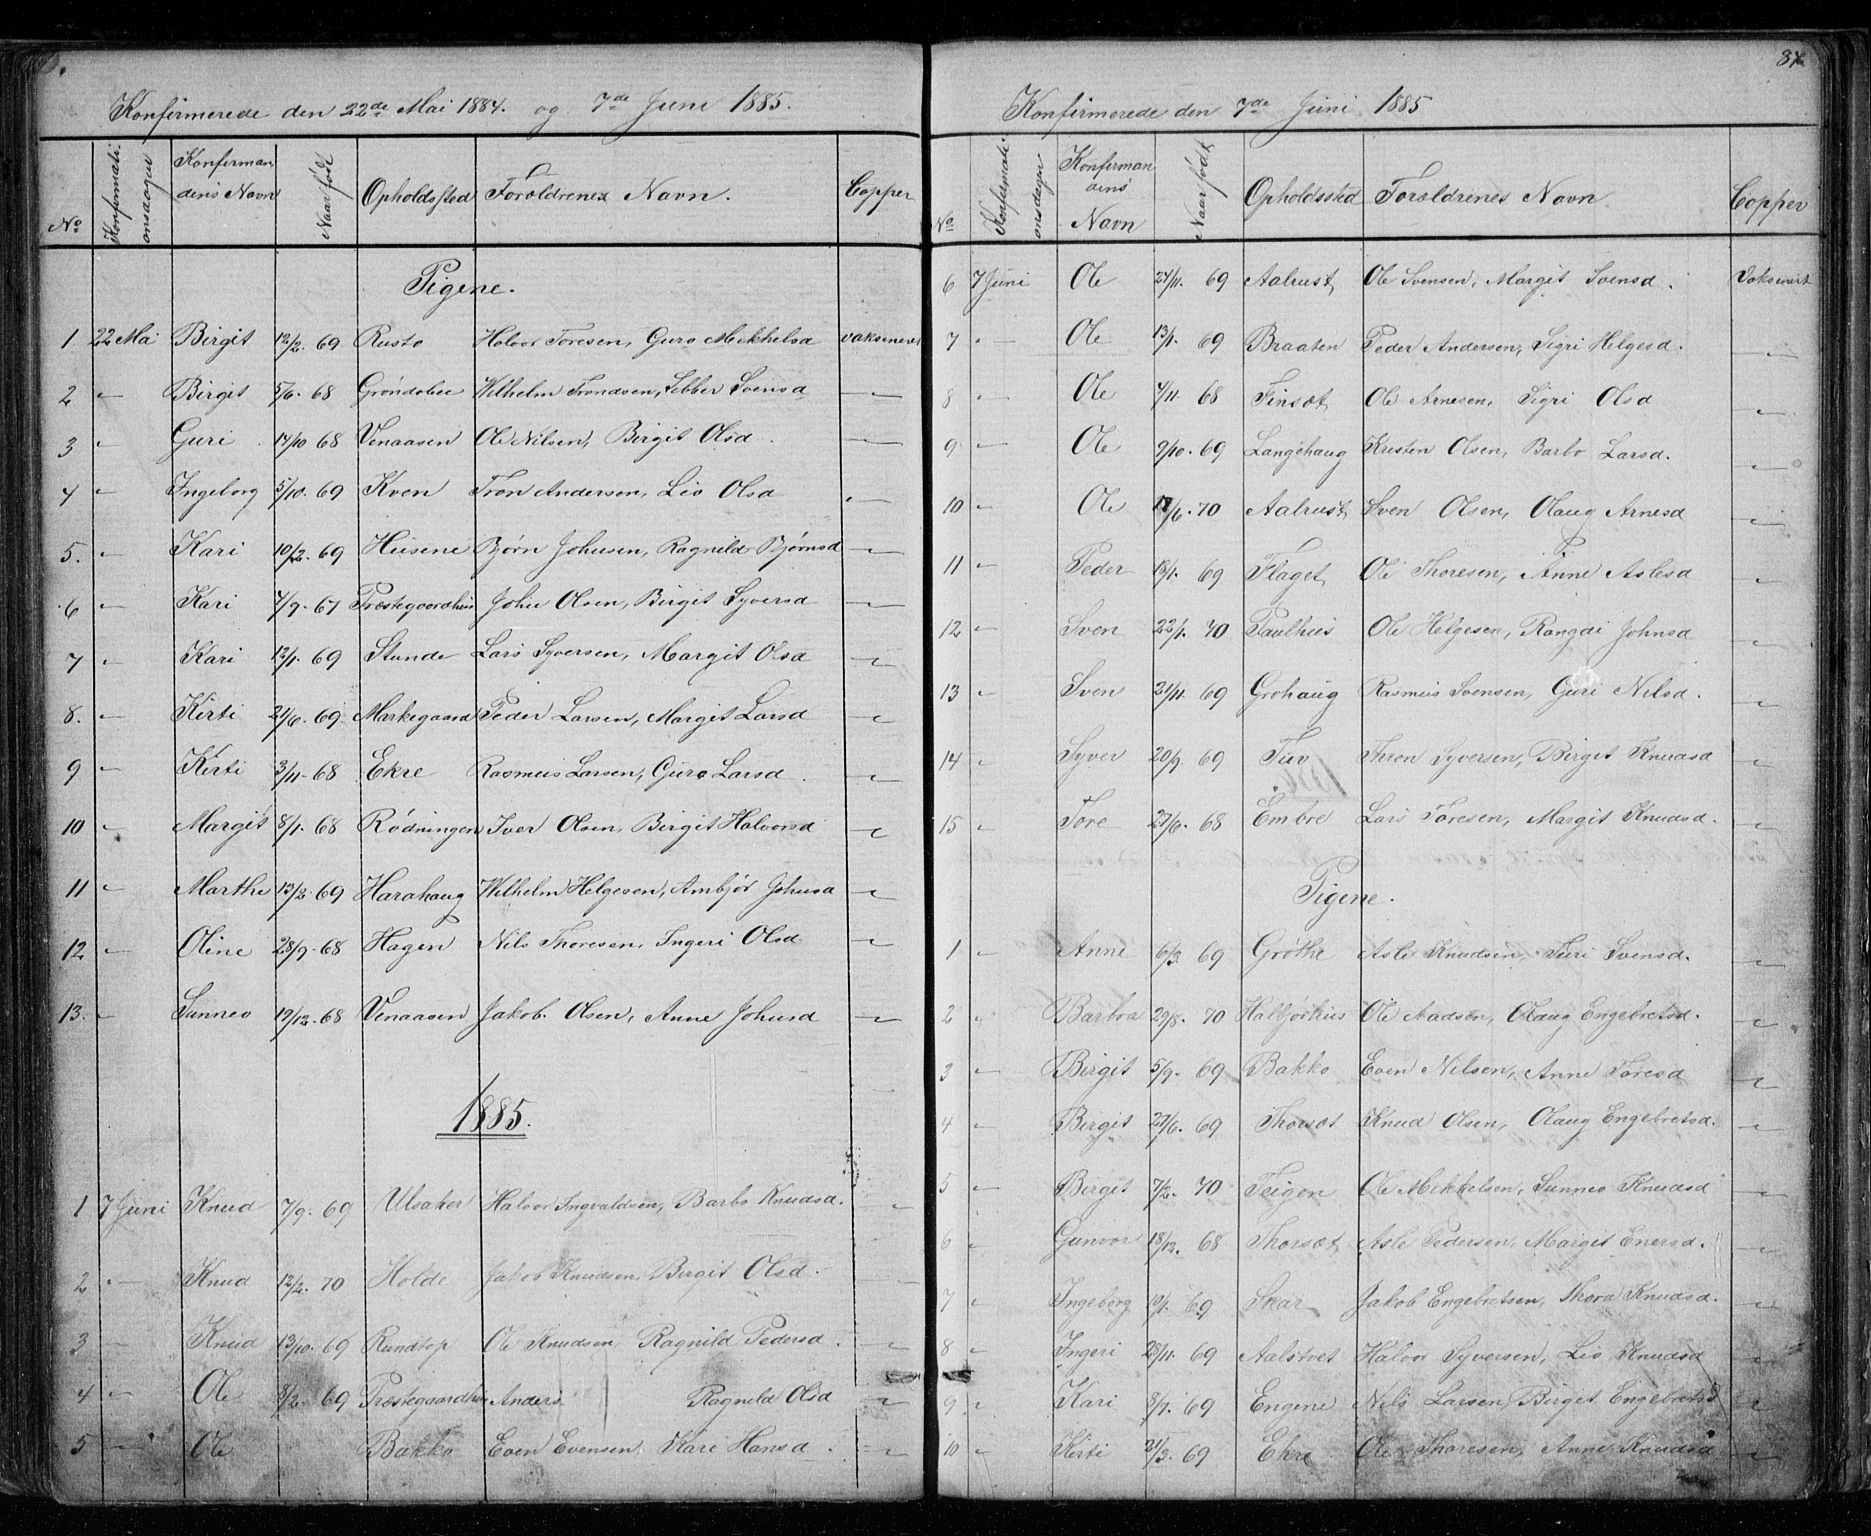 Konfirmerede den 22de Mai 1884. og 7de Juni 1885.
No Konfirmationsdagen Konfirmandens Navn Naar født Opholdssted Forældrenes Navn. Copper
Pigene.
1 22 Mai Birgit 12/2. 69 Rusto Halvor Toresen, Guro Mekkelsd vaksineret
2 " Birgit 5/6. 68 Grøndalen Wilhelm Trondsen, Sebber Svensd "
3 " Guri 17/10 68 Venaasen Ole Nilsen, Birgit Olsd. "
4 " Ingeborg 5/10. 69 Kven Tron Andersen, Liv Olsd "
5. " Kari 10/2. 69 Husene Bjørn Johnsen, Ragnild Bjørnsd "
6 " Kari 7/9. 67 Præstegaardhus John Olsen, Birgit Syversd "
7 " Kari 12/1. 69 Stunde Lars Syversen, Margit Olsd "
8. " Kirti 21/6. 69 Markegaard Peder Larsen, Margit Larsd "
9 " Kirti 3/11. 68 Ekre Rasmus Larsen, Guro Larsd. "
10 " Margit 8/1. 68 Rødningen Iver Olsen, Birgit Halvorsd "
11 " Marthe 13/2 69 Harahaug Wilhelm Helgesen, Ambjør Johnsd "
12 " Oline 28/9. 68 Hagen Nils Thoresen, Ingeri Olsd "
13. " Sunnev 19/12. 68 Venaasen Jakob Olsen, Anne Johnsd "
1885.
1 7 Juni Knud 7/9. 69 Ulsaker Halvor Ingvaldsen, Barbo Knudsd. "
2 " Knud 12/2. 70 Holde Jakob Knudsen, Birgit Olsd. "
3 " Knud 13/10. 69 Rundtop Ole Knudsen Ragnild Pedersd. "
4 " Ole 8/2. 69 Præstegaardhus Anders Ragnild Olsd "
5 " Ole Bakko Even Evensen Kari Hansd. "
84
Konfirmerede den 7de Juni 1885
No Konfirmationsdagen Konfirmandens Navn Naar født Opholdssted Forældrenes Navn. Copper
6 7 Juni Ole 27/11. 69 Aalrust Ole Svensen, Margit Svensd. Vaksinert
7 " Ole 13/1. 69 Braaten Peder Andersen, Sigri Helgesd. "
8 " Ole 4/11 68 Finset Ole Arnesen, Sigri Olsd "
9 " Ole 9/10. 69 Langehaug Kristen Olsen, Barbo Larsd. "
10 " Ole 17/6. 70 Aalrust Sven Olsen, Olaug Arnesd "
11 " Peder 18/1. 69 Flaget Ole Thoresen, Anne Aslesd "
12 " Sven 22/1. 70 Paulhus Ole Helgesen, Rangdi Johnsd "
13 " Sven 21/11 69 Grøhaug Rasmus Svensen, Guri Nilsd. "
14 " Syver 20/9 69 Tuv Thron Syversen, Birget Knudsd "
15 " Tore 27/6. 68 Embre Lars Toresen, Margit Knudsd. "
Pigene.
1 " Anne 6/3. 69 Grøthe Asle Knudsen, Turi Svensd. "
2 " Barbra 29/8. 70 Halbjørhus Ole Aadsen, Olaug Engebretsd. "
3 " Birgit 5/9. 69 Bakko Even Nilsen, Anne Toresd "
4 " Birgit 27/6. 69 Thorset Knud Olsen, Olaug Engebretsd. "
5 " Birgit 7/2. 70 Teigen Ole Mekkelsen, Sunnev Knudsd "
6 " Gunvor 18/12. 68 Thorset Asle Pedersen, Margit Enersd. "
7 " Ingeborg 10/1. 69 Skar Jakob Engebretsen, Thora Knudsd. "
8 " Ingeri 28/11. 69 Aalstvet Halvor Syversen, Liv Knudsd "
9 " Kari 8/7. 69 Engene Nils Larsen, Birget Engebretsd "
10 " Kirti 21/3. 69 Ekre Ole Thoresen, Anne Knudsd "